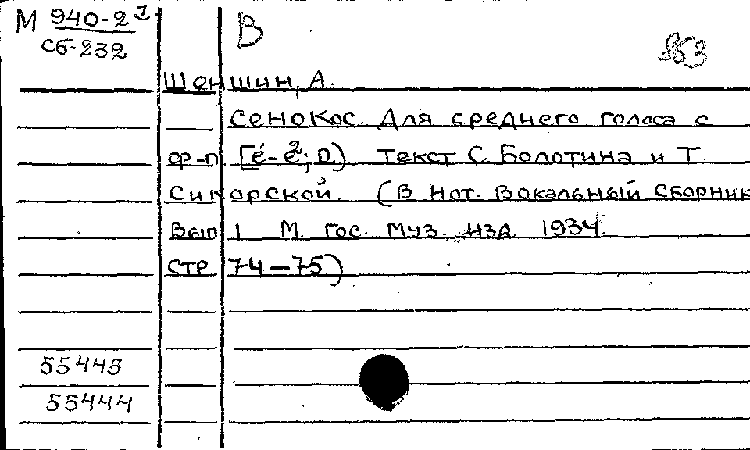 М 940-2 1
Сб-232
В
953
Шеншин, А.
Сенокос. Для среднего голоса с
ф-п. [е1-е2; D). Текст С. Болотина и Т.
Сикорской. (В нот. Вокальный сборник
Вып 1 М. Гос. Муз. изд. 1934.
стр 74-75)
55443
55444